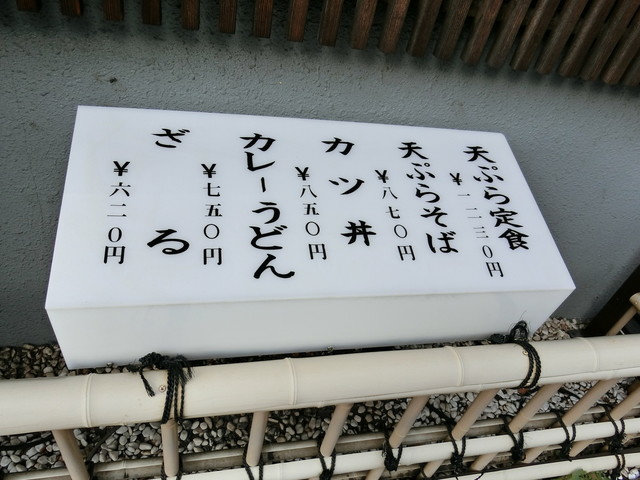 天ぷら定食
¥一二三〇円
天ぷらそば
¥八七〇円
カツ丼
¥八五〇円
カレーうどん
¥七五〇円
ざる
¥六二〇円